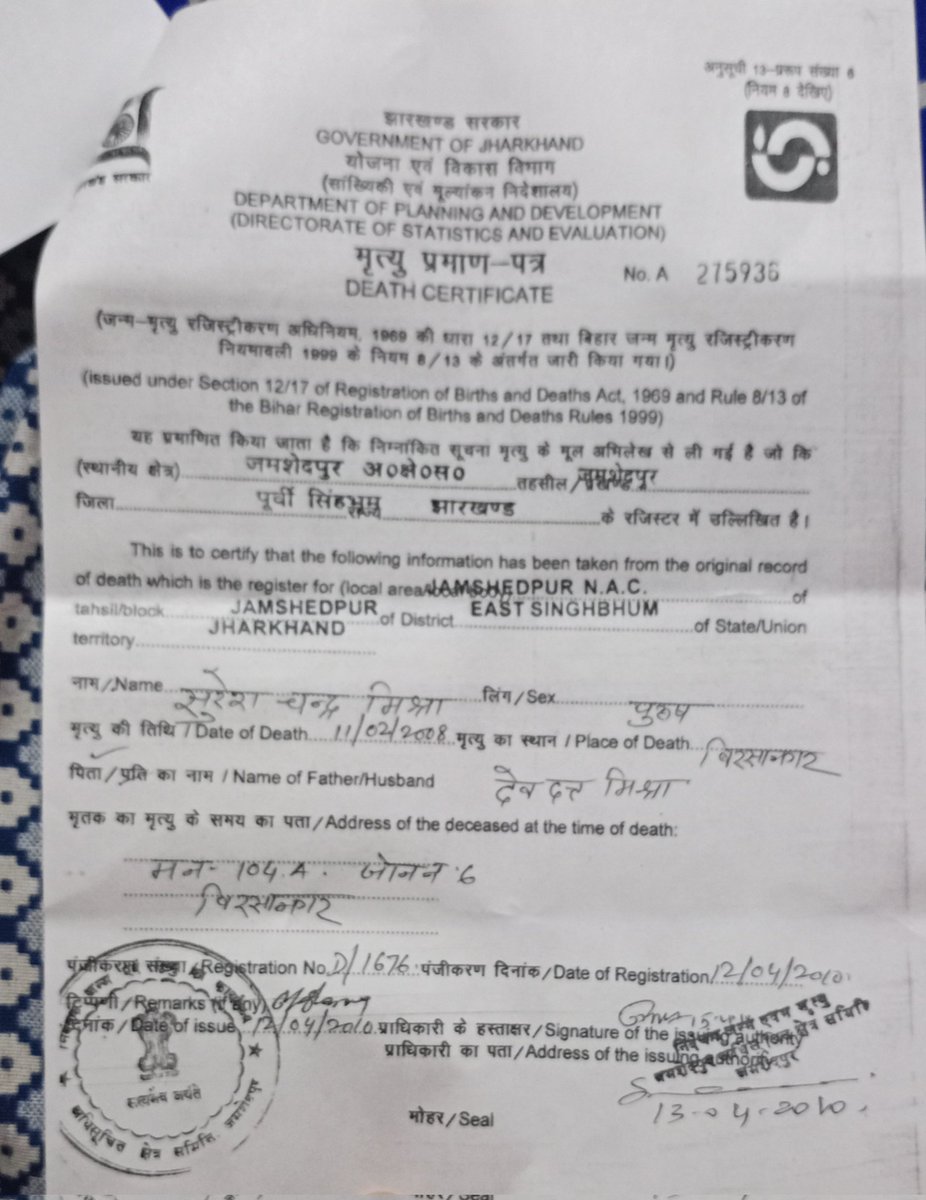 अनुसूची 13-प्ररूप संख्या 6
(नियम 8 देखिए)
झारखण्ड सरकार
GOVERNMENT OF JHARKHAND
योजना एवं विकास विभाग
(सांख्यिकी एवं मूल्यांकन निदेशालय)
DEPARTMENT OF PLANNING AND DEVELOPMENT
(DIRECTORATE OF STATISTICS AND EVALUATION)
मृत्यु प्रमाण-पत्र
No. A 275936
DEATH CERTIFICATE
(जन्म-मृत्यु रजिस्ट्रीकरण अधिनियम, 1969 की धारा 12/17 तथा बिहार जन्म मृत्यु रजिस्ट्रीकरण
नियमावली 1999 के नियम 8/13 के अंतर्गत जारी किया गया।)
(issued under Section 12/17 of Registration of Births and Deaths Act, 1969 and Rule 8/13 of
the Bihar Registration of Births and Deaths Rules 1999)
यह प्रमाणित किया जाता है कि निम्नांकित सूचना मृत्यु के मूल अभिलेख से ली गई है जो कि
(स्थानीय क्षेत्र) जमशेदपुर अ०क्षे०स० तहसील/ जमशेदपुर
जिला पूर्वी सिंहभूम झारखण्ड के रजिस्टर में उल्लिखित है।
This is to certify that the following information has been taken from the original record
of death which is the register for (local area JAMSHEDPUR N.A.C. of
tahsil/block JAMSHEDPUR of District EAST SINGHBHUM of State/Union
territory JHARKHAND
नाम/Name सुरेश चन्द्र मिश्रा लिंग/Sex पुरुष
मृत्यु की तिथि/Date of Death 11/02/2008 मृत्यु का स्थान/Place of Death बिरसानगर
पिता/प्रति का नाम/Name of Father/Husband देव दत्त मिश्रा
मृतक का मृत्यु के समय का पता/Address of the deceased at the time of death:
मन- 104.A. जोनन 6
बिरसानगर
पंजीकरण संख्या/Registration No. D/1676 पंजीकरण दिनांक/Date of Registration 12/04/2010
टिप्पणी/Remarks (if any)
दिनांक/Date of issue 12/04/2010 प्राधिकारी के हस्ताक्षर/Signature of the issuing authority
प्राधिकारी का पता/Address of the issuing authority
जमशेदपुर
13-04-2010.
सत्यमेव जयते
अधिसूचित क्षेत्र समिति, जमशेदपुर
मोहर/Seal